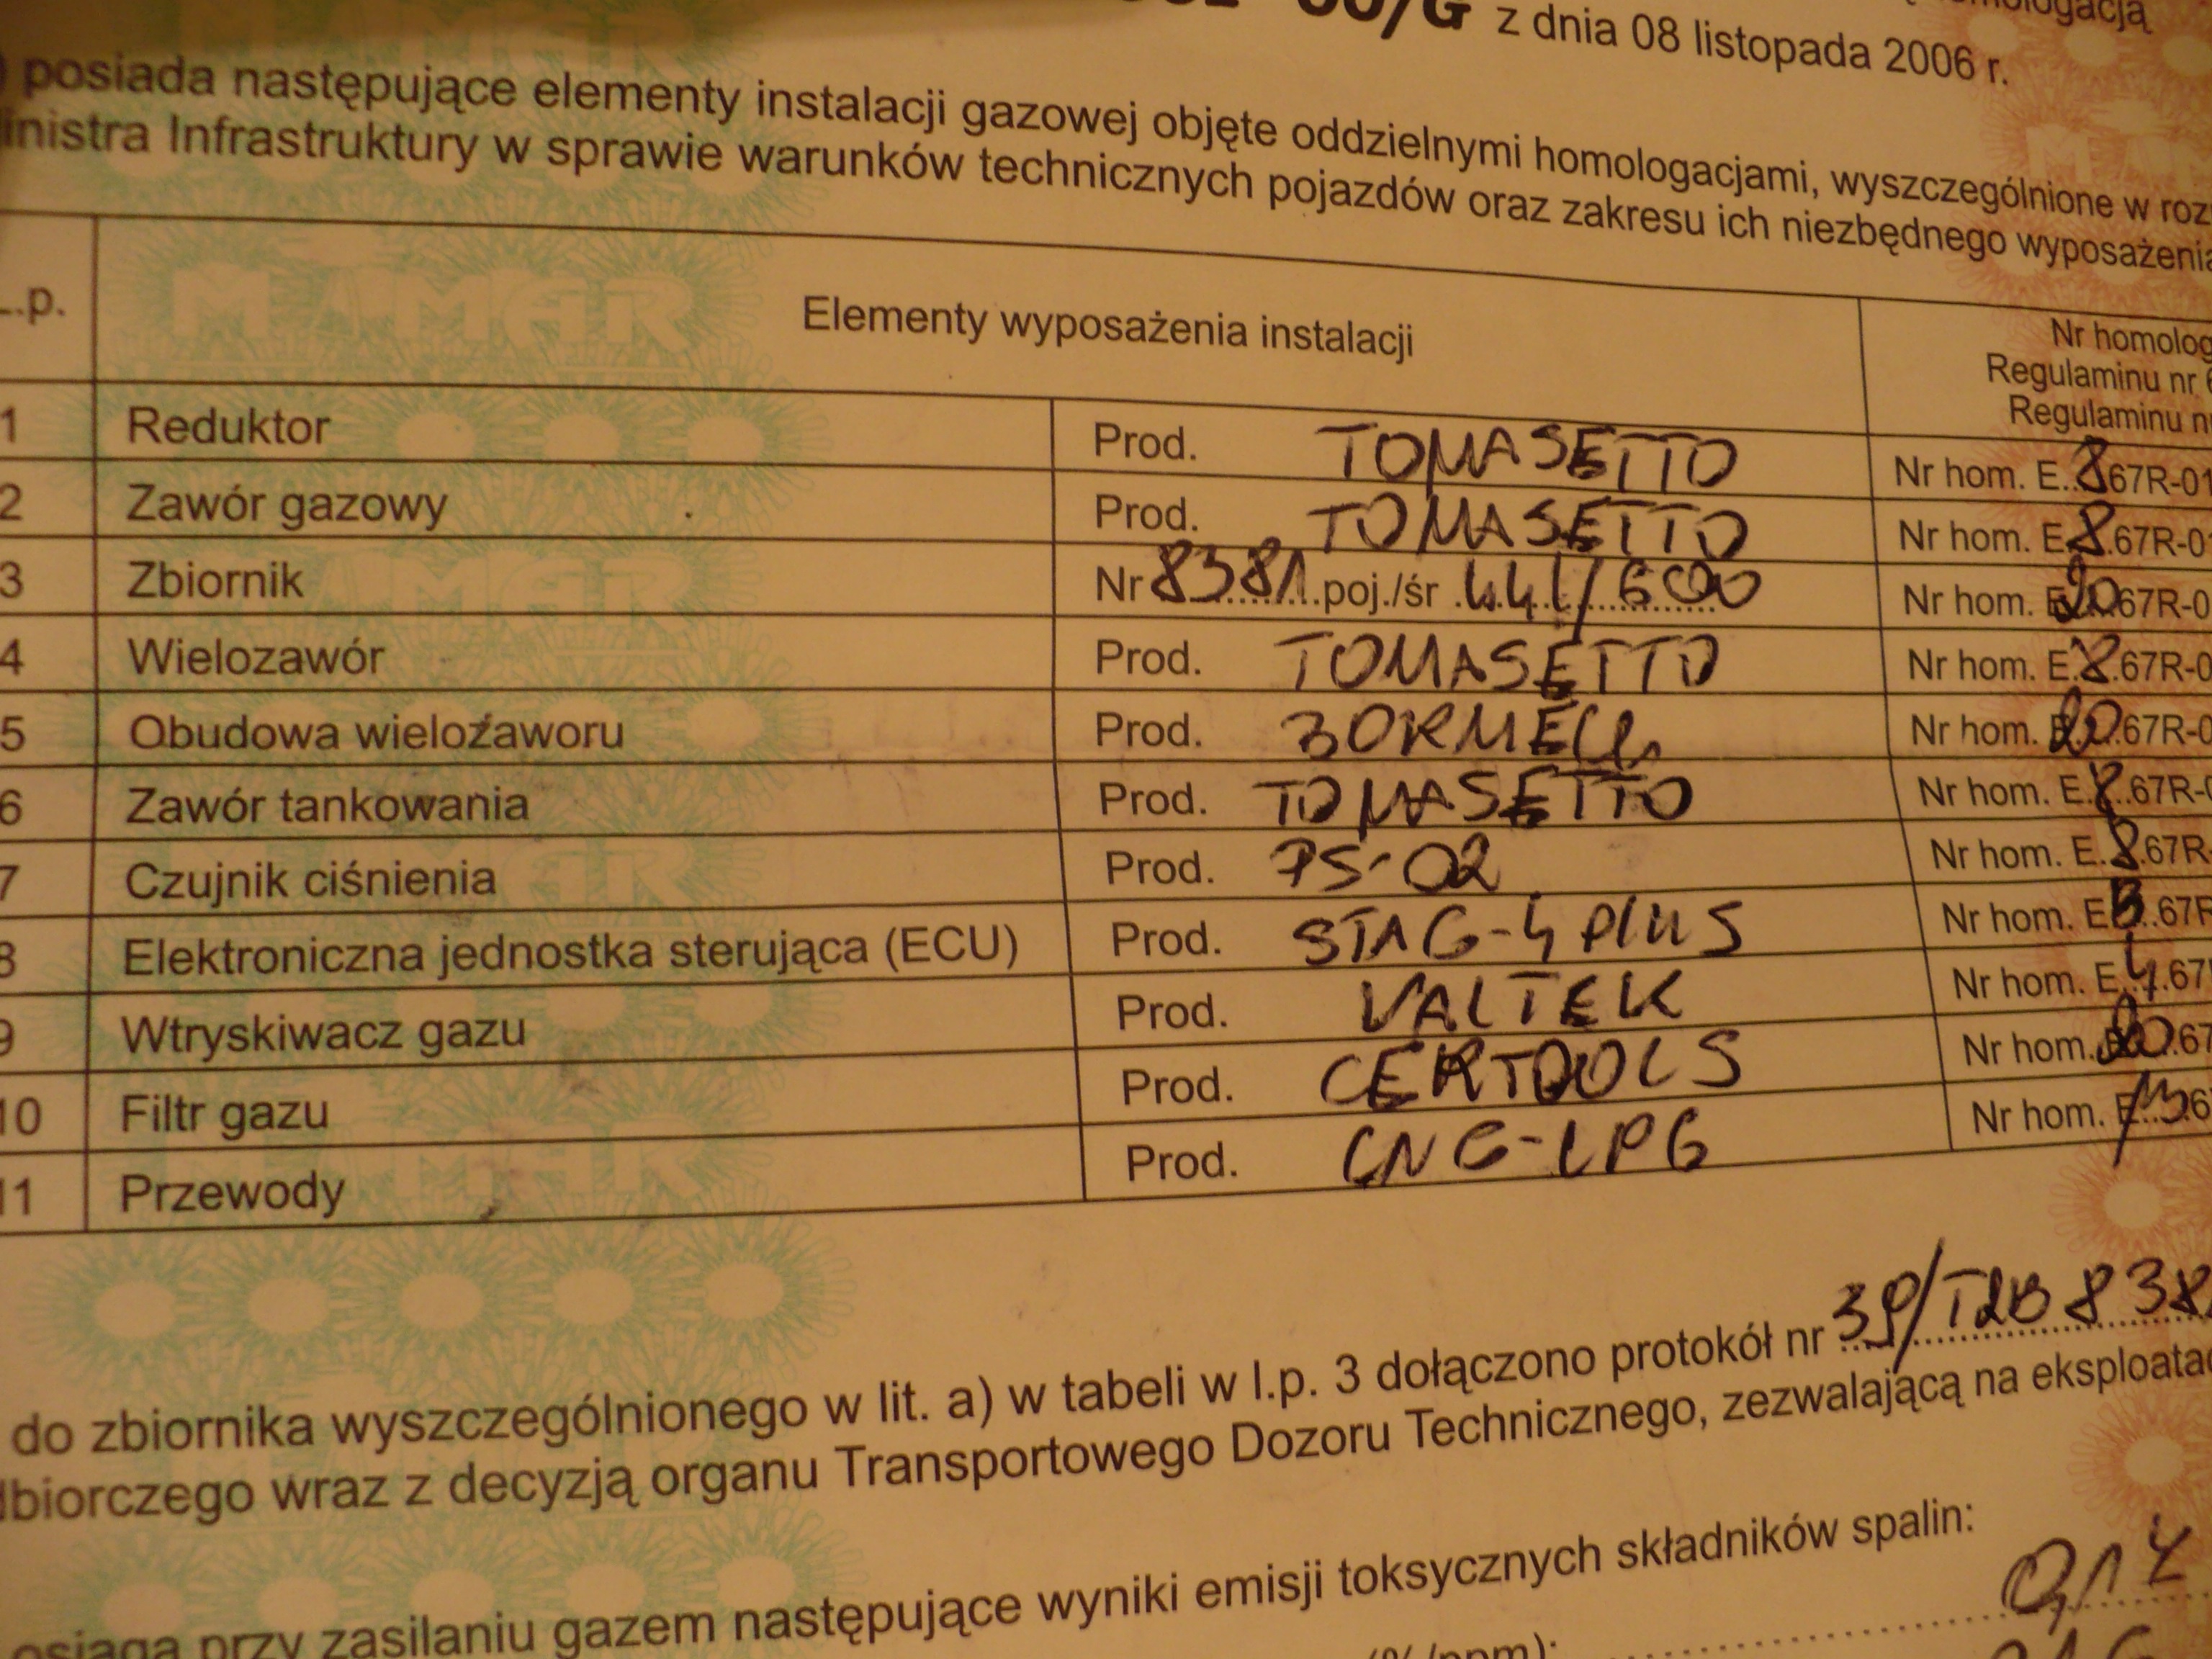 z dnia 08 listopada 2006 r.
posiada następujące elementy instalacji gazowej objęte oddzielnymi homologacjami, wyszczególnione w roz
inistra Infrastruktury w sprawie warunków technicznych pojazdów oraz zakresu ich niezbędnego wyposażenia
L.p. Elementy wyposażenia instalacji
Nr homolog
Regulaminu nr 6
Regulaminu n
1 Reduktor Prod. TOMASETTO Nr hom. E.8 67R-01
2 Zawór gazowy Prod. TOMASETTO Nr hom. E.8.67R-0
3 Zbiornik Nr 8381 poj./śr 44l/600 Nr hom. E20 67R-0
4 Wielozawór Prod. TOMASETTO Nr hom. E.8.67R-0
5 Obudowa wielozaworu Prod. BORMECh Nr hom. E20.67R-0
6 Zawór tankowania Prod. TOMASETTO Nr hom. E.8.67R-0
7 Czujnik ciśnienia Prod. PS-02 Nr hom. E.8.67R-
8 Elektroniczna jednostka sterująca (ECU) Prod. STAG-4 PlUS Nr hom. E 67R
9 Wtryskiwacz gazu Prod. VALTEK Nr hom. E.4.67
10 Filtr gazu Prod. CERTOOLS Nr hom. E20.67
11 Przewody Prod. CNG-LPG Nr hom. E13.6
do zbiornika wyszczególnionego w lit. a) w tabeli w l.p. 3 dołączono protokół nr 39/T2B 838
dbiorczego wraz z decyzją organu Transportowego Dozoru Technicznego, zezwalającą na eksploatac
osiąga przy zasilaniu gazem następujące wyniki emisji toksycznych składników spalin:
(%/ppm):